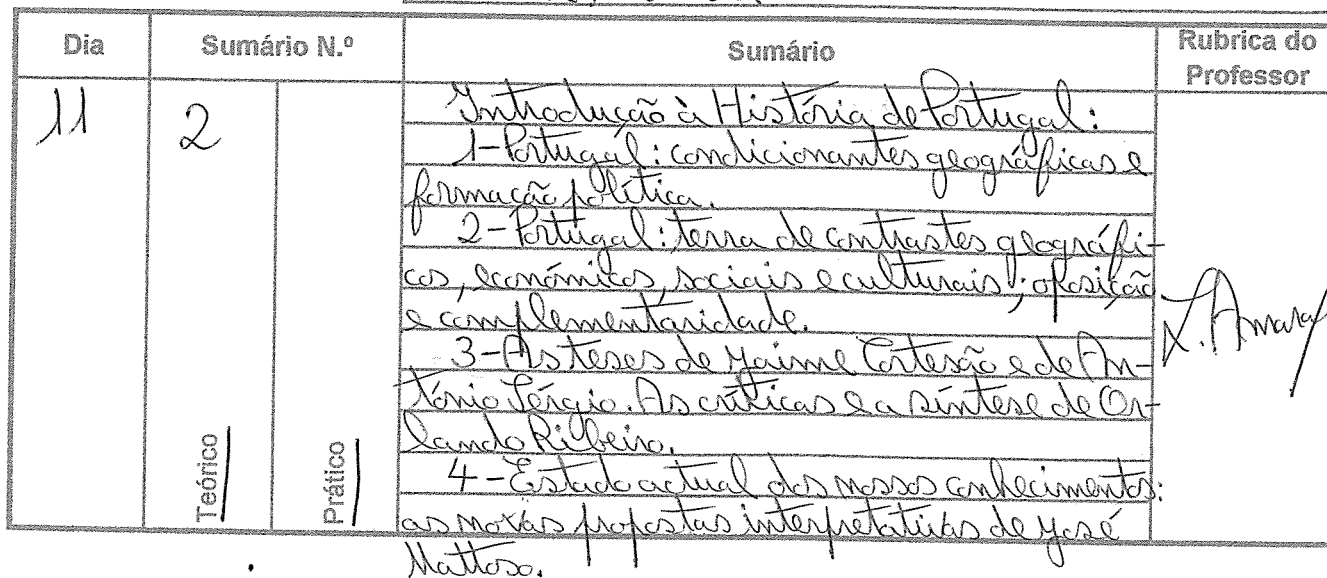 Dia Sumário N.º Sumário Rubrica do Professor
11 2
Introdução à História de Portugal:
1-Portugal: condicionantes geográficas e
formação política.
2-Portugal: terra de contrastes geográfi-
cos, económicos, sociais e culturais; oposição
e complementaridade.
3-As teses de Jaime Cortesão e de An-
tónio Sérgio. As críticas e a síntese de Or-
lando Ribeiro.
4-Estado actual dos nossos conhecimentos:
as novas propostas interpretativas de José
Mattoso.
L. Amaral
Teórico
Prático